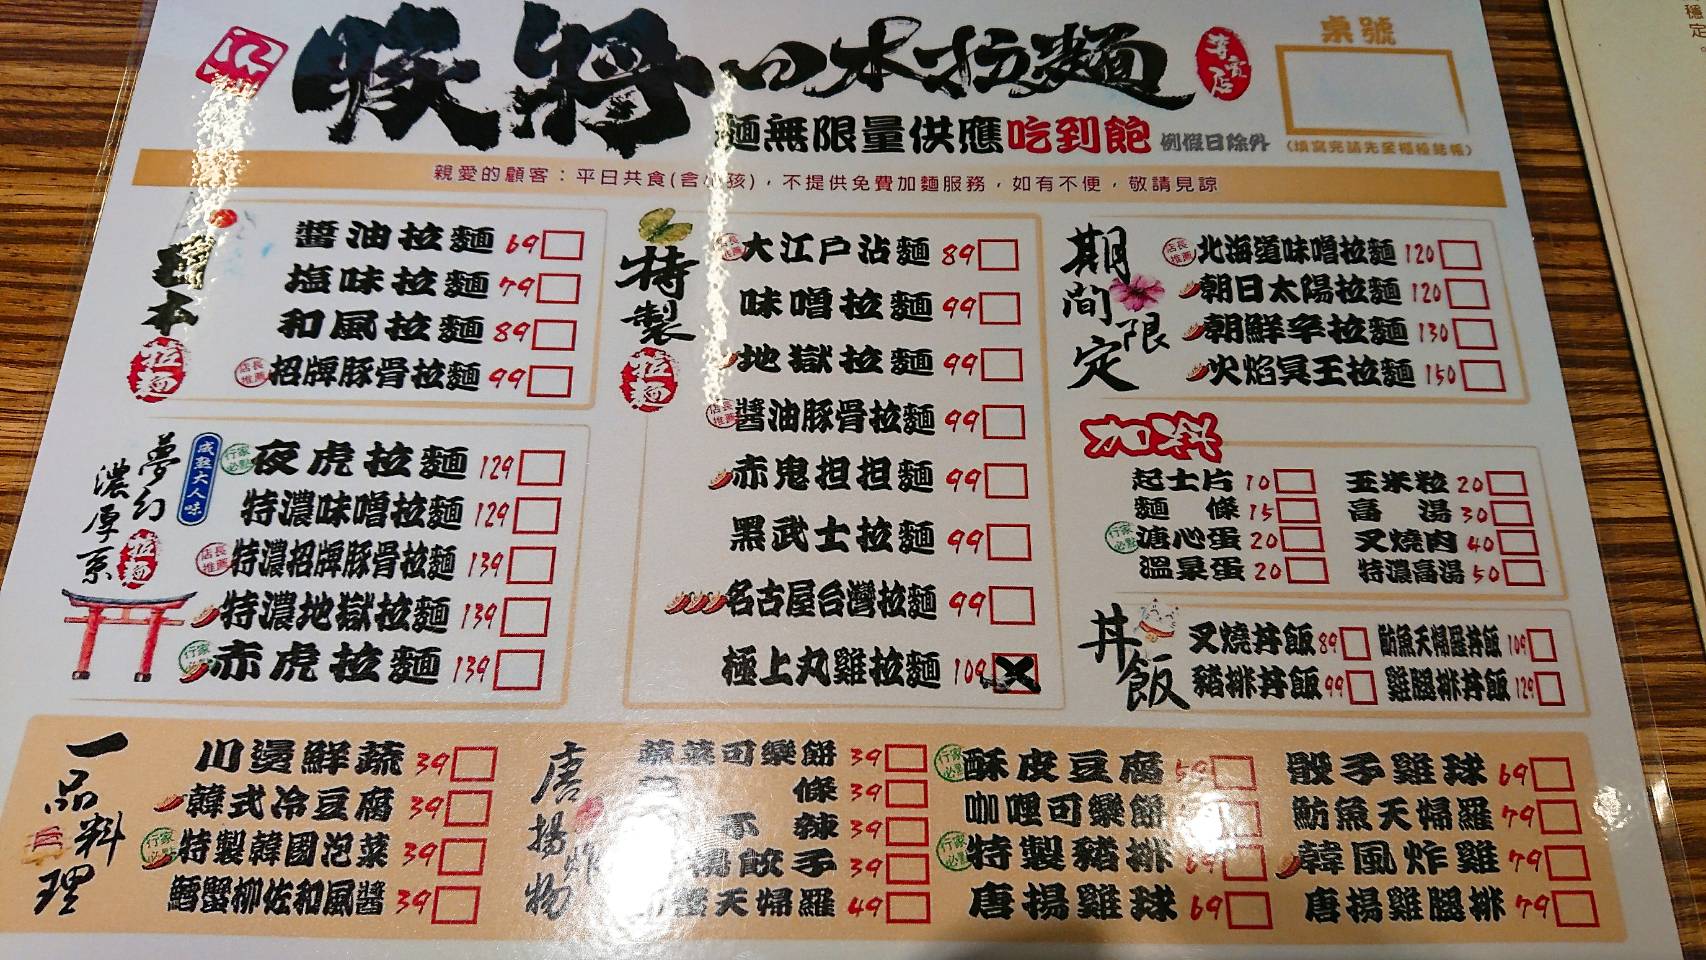 豚將日本拉麵
麵無限量供應吃到飽 例假日除外
桌號
(填寫完請先至櫃檯結帳)
親愛的顧客：平日共食(含小孩)，不提供免費加麵服務，如有不便，敬請見諒
日本
拉麵
醬油拉麵 69
塩味拉麵 79
和風拉麵 89
店長推薦 招牌豚骨拉麵 99
夢幻濃厚系
拉麵
成熟大人味
行家必點 夜虎拉麵 129
特濃味噌拉麵 129
店長推薦 特濃招牌豚骨拉麵 139
特濃地獄拉麵 139
行家必點 赤虎拉麵 139
特製
拉麵
店長推薦 大江戶沾麵 89
味噌拉麵 99
地獄拉麵 99
店長推薦 醬油豚骨拉麵 99
赤鬼担担麵 99
黑武士拉麵 99
名古屋台灣拉麵 99
極上丸雞拉麵 109
期間限定
店長推薦 北海道味噌拉麵 120
朝日太陽拉麵 120
朝鮮辛拉麵 130
火焰冥王拉麵 150
加料
起士片 10 玉米粒 20
麵條 15 高湯 30
行家必點 溏心蛋 20 叉燒肉 40
溫泉蛋 20 特濃高湯 50
丼飯
叉燒丼飯 89 魴魚天婦羅丼飯 109
豬排丼飯 99 雞腿排丼飯 129
一品料理
川燙鮮蔬 39
韓式冷豆腐 39
行家必點 特製韓國泡菜 39
鱈蟹柳佐和風醬 39
唐揚炸物
蔬菜可樂餅 39
條 39
不辣 39
餃子 39
天婦羅 49
行家必點 酥皮豆腐 59
咖哩可樂餅
行家必點 特製豬排 69
唐揚雞球 69
骰子雞球 69
魴魚天婦羅 79
韓風炸雞 79
唐揚雞腿排 79